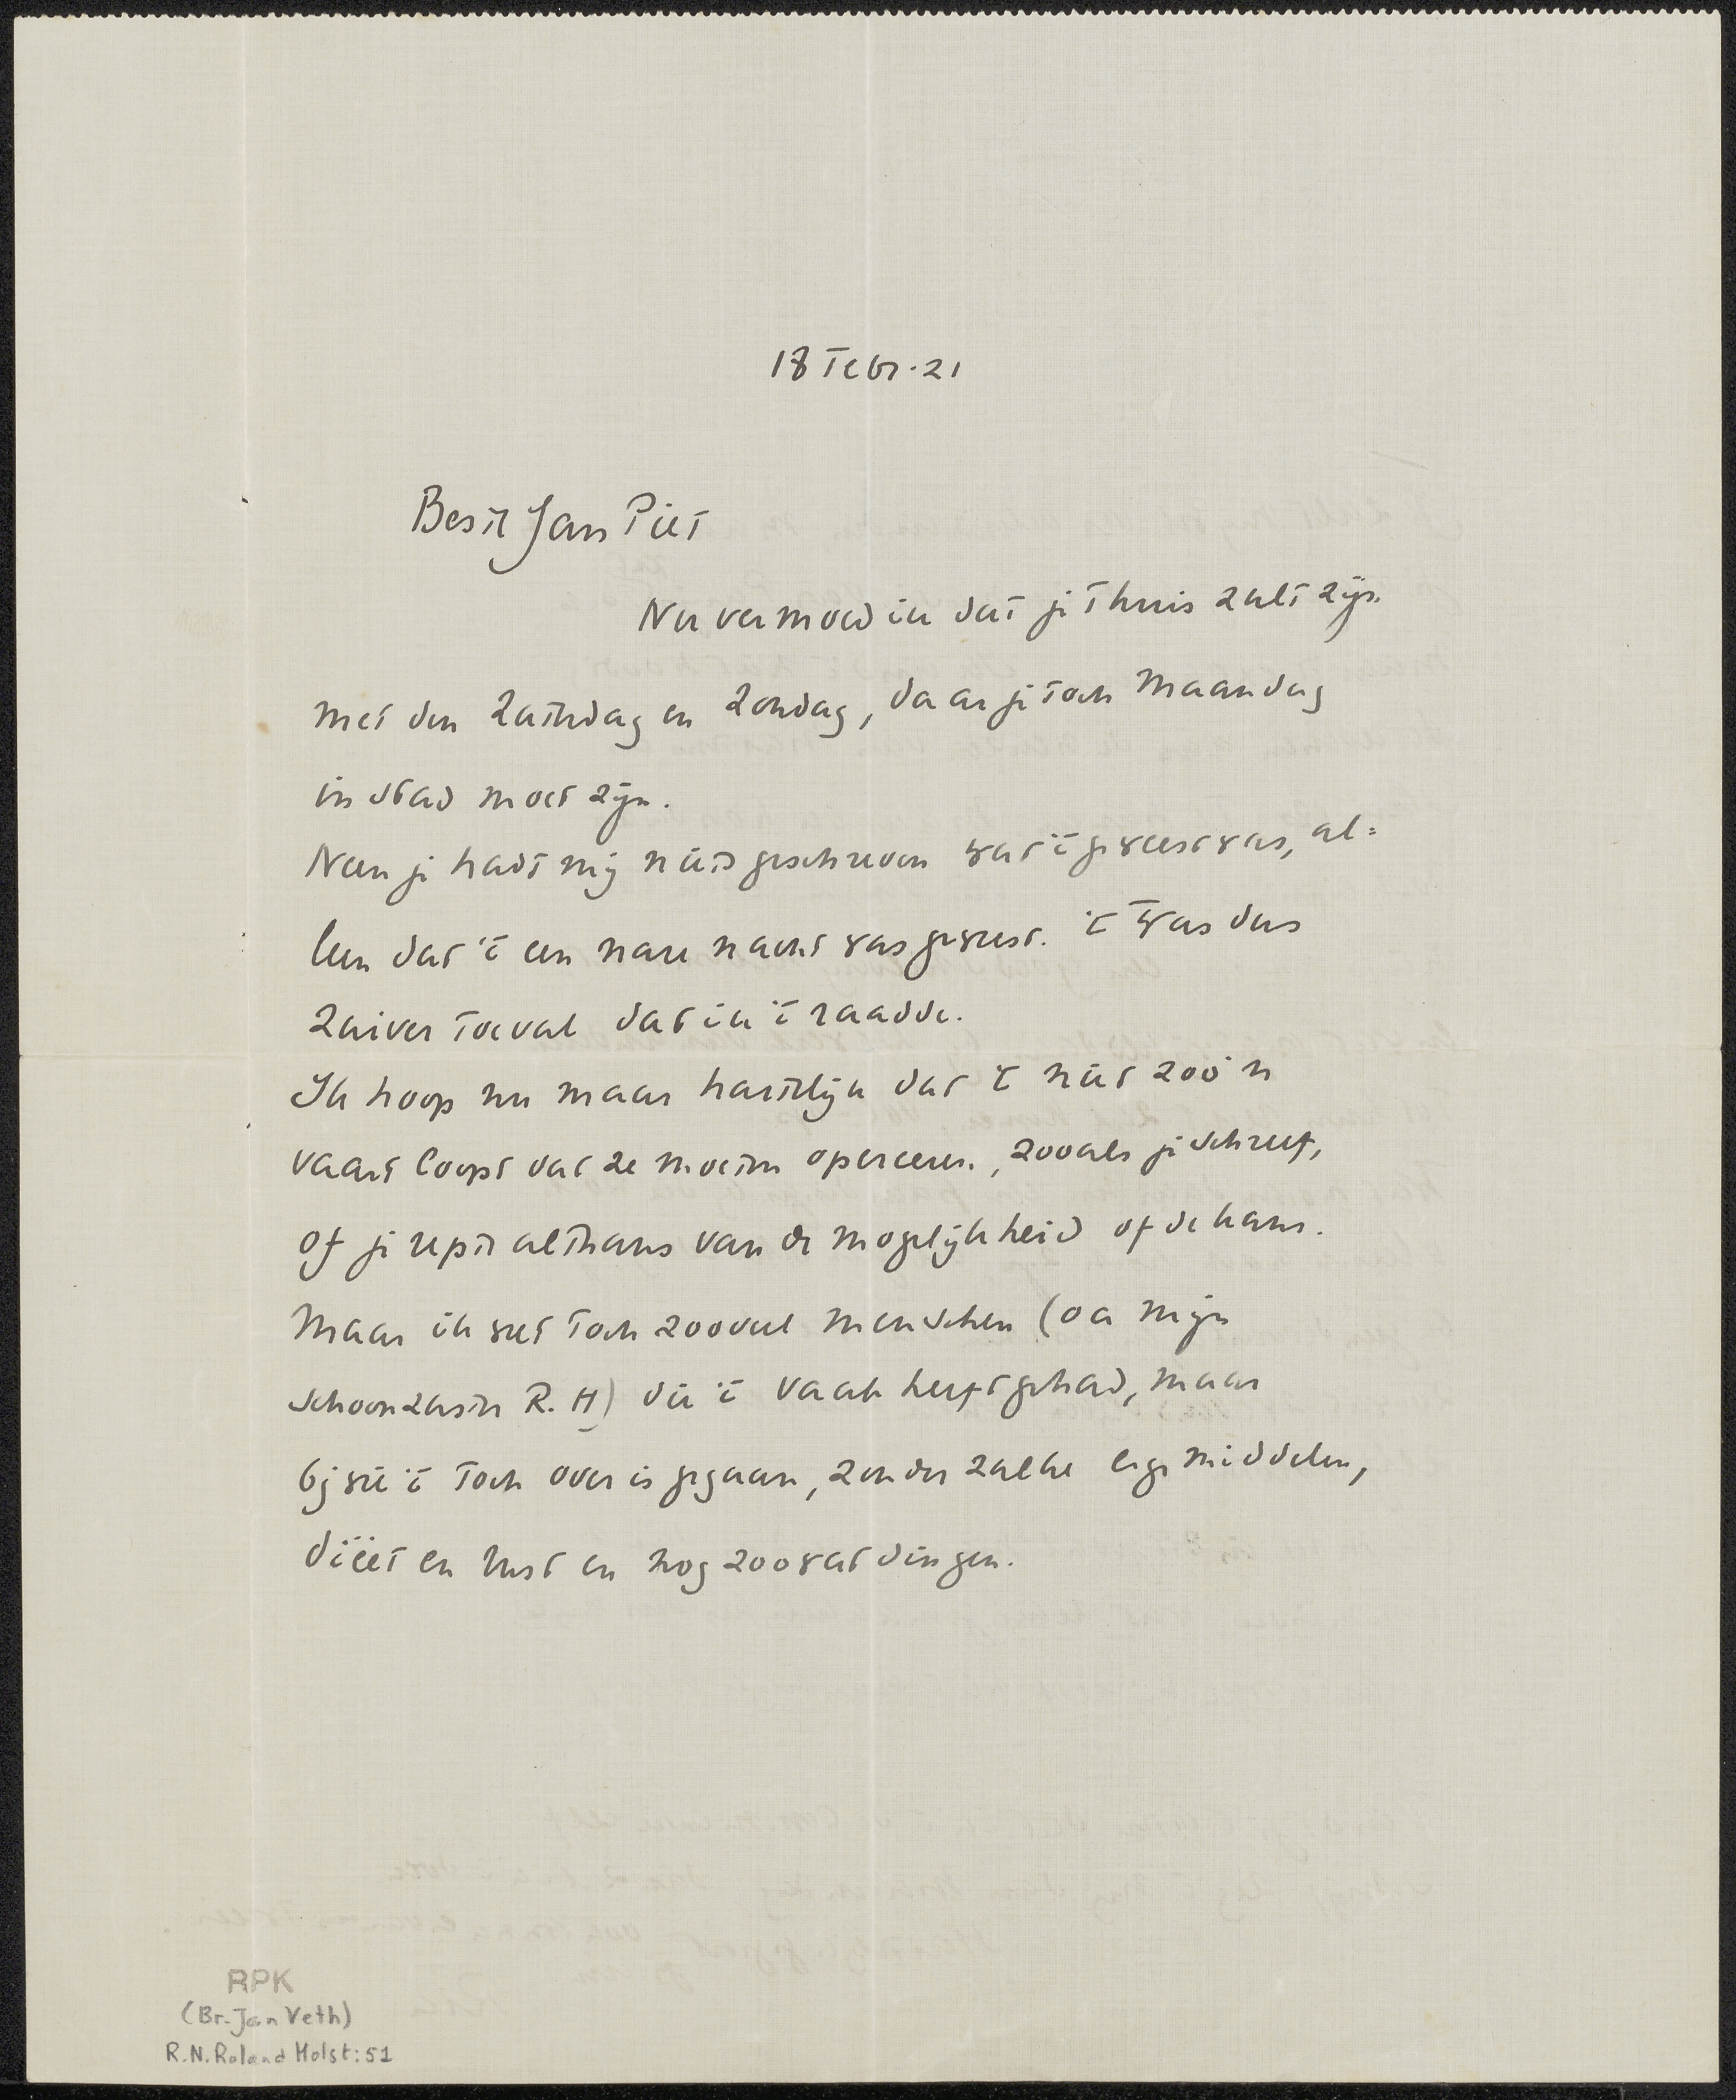 18 Febr. 21
Beste Jan Piet
Nu vermoed ik dat je thuis zult zijn
met den Zaterdag en Zondag, daar je toch Maandag
in stad moet zijn.
Neen je hadt mij niets geschreven wat 't geweest was, al=
leen dat 't een nare nacht was geweest. 't Was dus
zuiver toeval dat ik 't raadde.
Ik hoop nu maar hartelijk dat 't niet zoo'n
vaart loopt dat ze moeten opereeren, zooals je schreef,
of je repte althans van de mogelijkheid of de kans.
Maar ik weet toch zooveel menschen (oa mijn
schoonzuster R. H) die 't vaak heeft gehad, maar
bij wie 't toch over is gegaan, zonder zulke erge middelen,
diëet en rust en nog zoowat dingen.
RPK
(Br. Jan Veth)
R.N. Roland Holst: 51